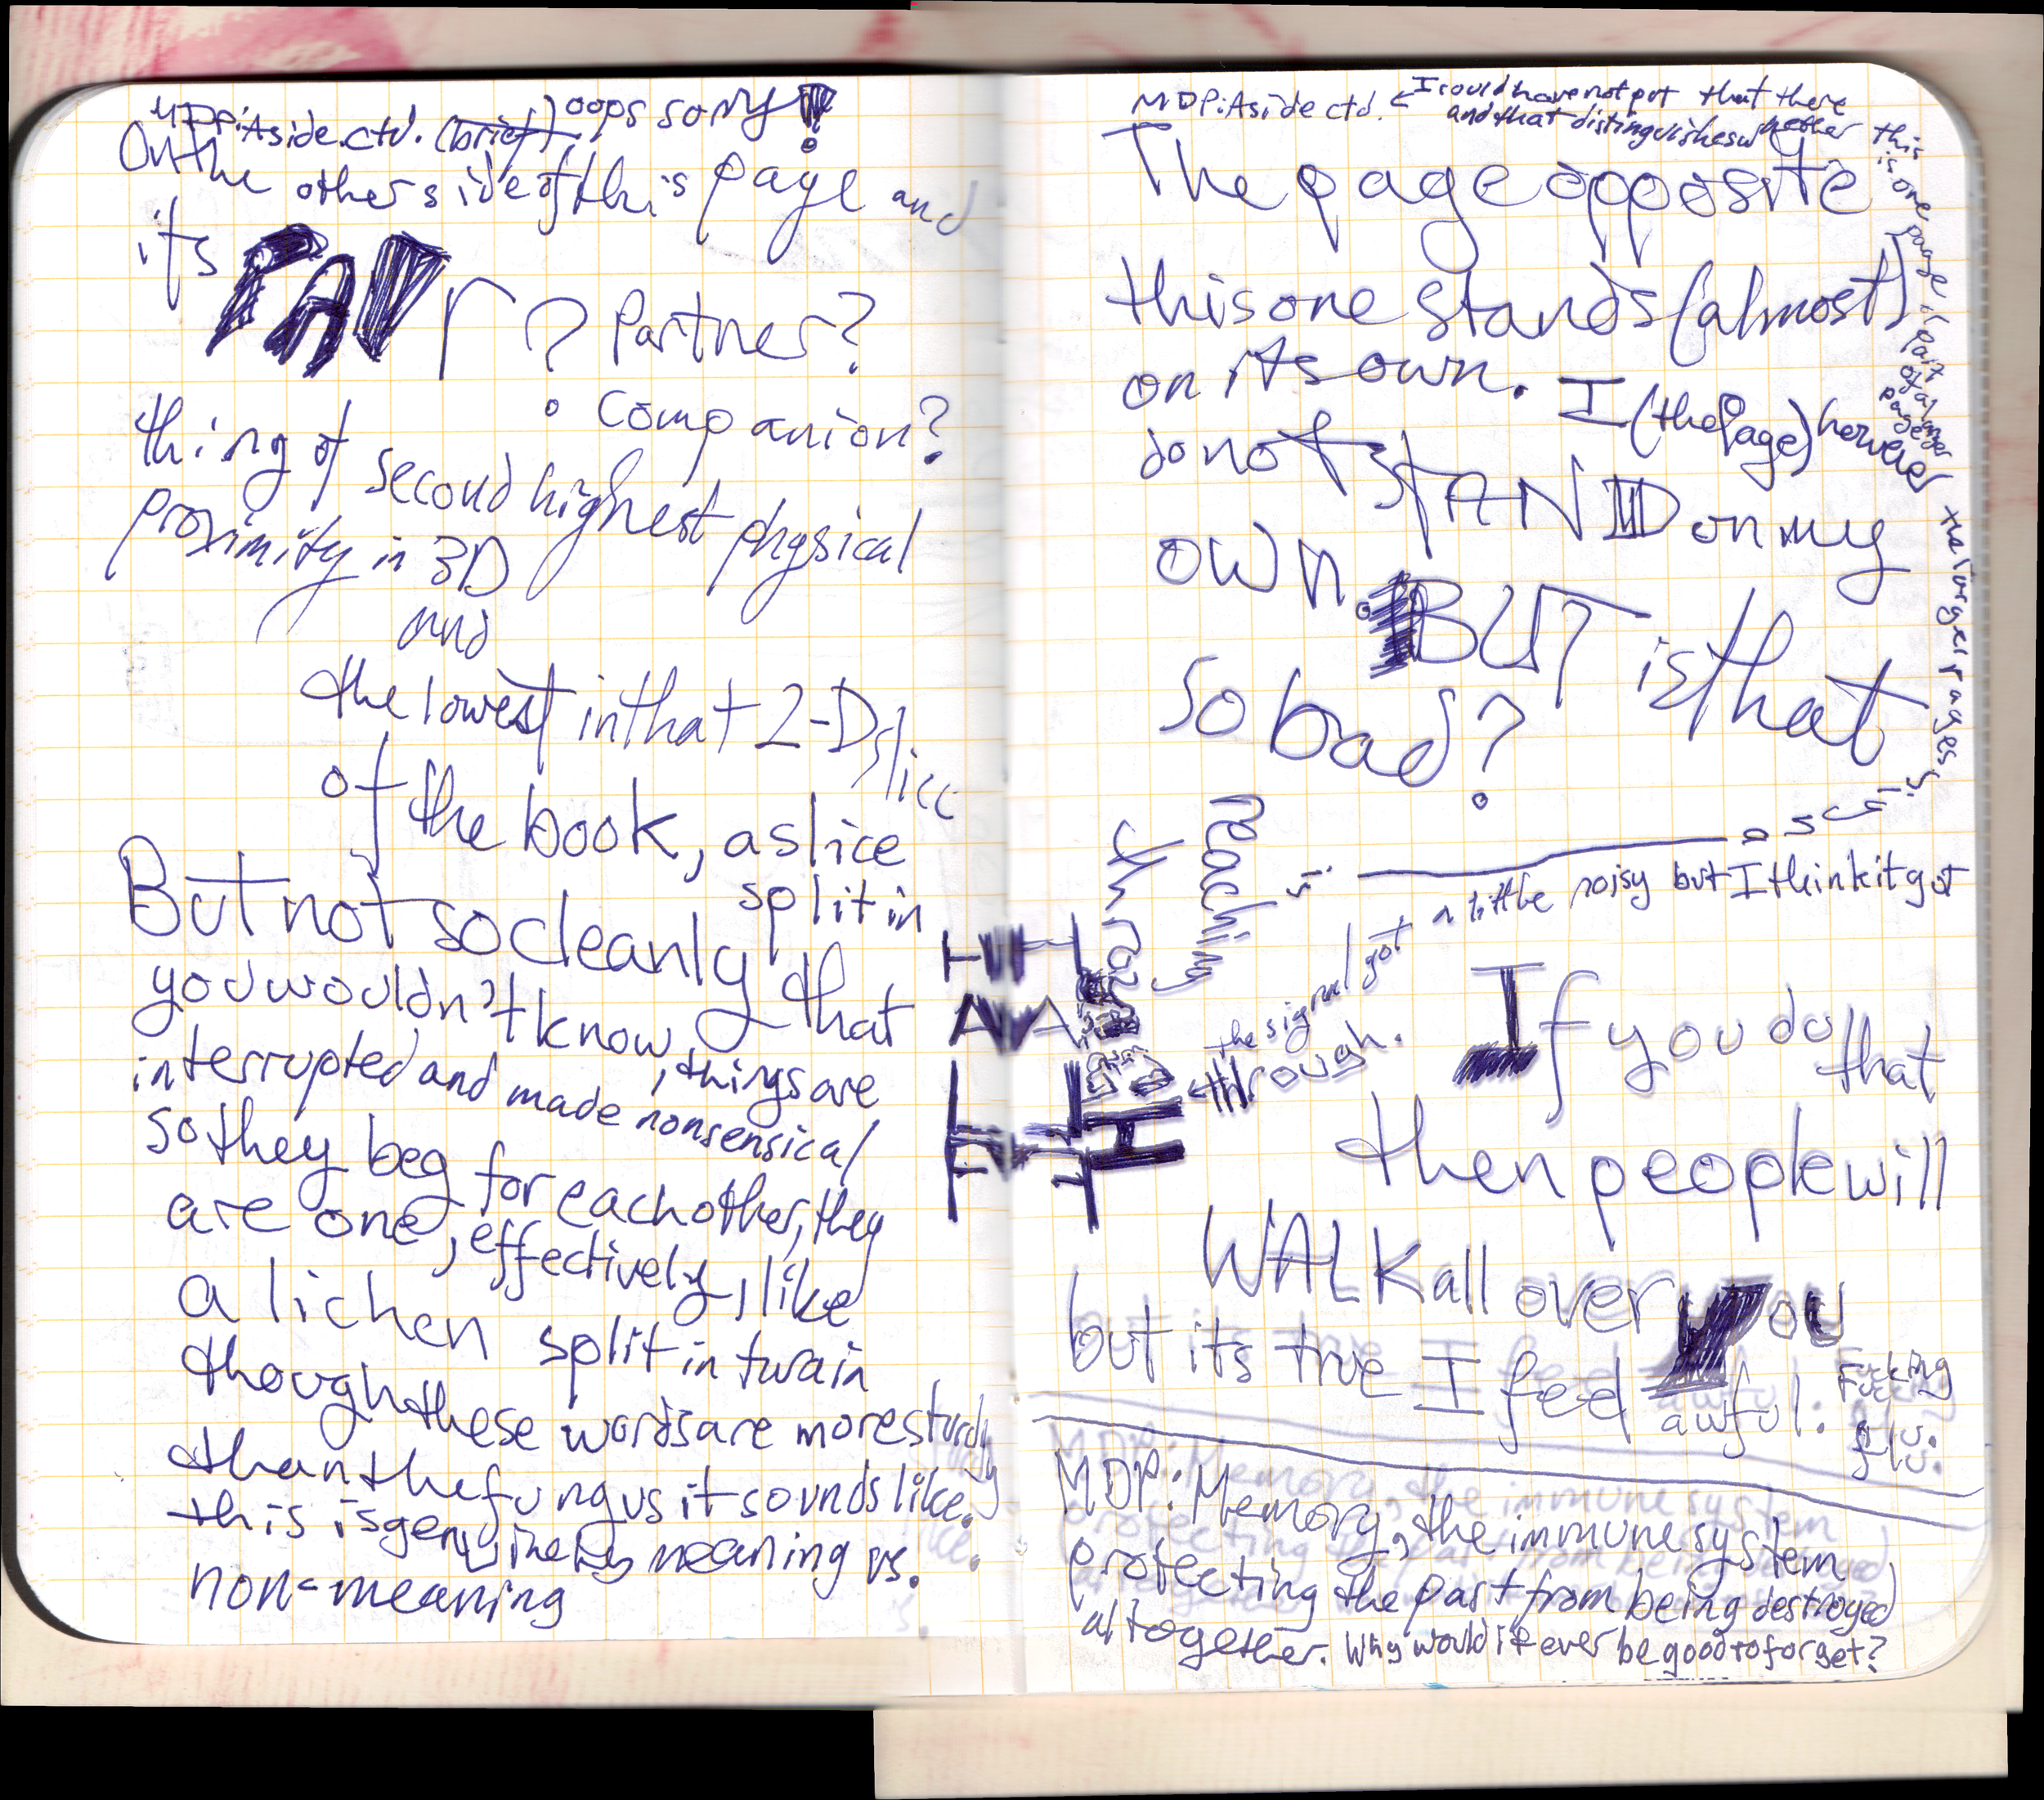 MDP: Aside ctd. (brief) oops sorry!
On the other side of this page and
its PAIr? Partner?
Companion?
thing of second highest physical
proximity in 3D
and
the lowest in that 2-D slice
of the book, a slice
split in
But not so cleanly that
you wouldn't know, things are
interrupted and made nonsensical
so they beg for each other, they
are one, effectively, like
a lichen split in twain
though these words are more sturdy
than the fungus it sounds like.
this is genuinely meaning vs.
non-meaning
MDP: Aside ctd. ← I could have not put that there
and that distinguishes whether this
is one page or part of a larger page
the larger pages
The page opposite
this one stands (almost)
on its own. I (the Page) however
do not stAND on my
own. BUT is that
so bad?
reaching
through
the signal got a little noisy but I think it got
← through.
If you do that
then people will
WALK all over you
but its true I feel awful. Fucking
flu.
MDP: Memory, the immune system
protecting the past from being destroyed
altogether. Why would it ever be good to forget?